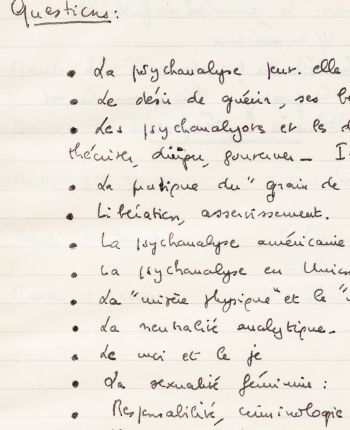 Questions:
• La psychanalyse peut-elle
• Le désir de guérir, ses
• Les psychanalystes et les
théoriser, diriger, gouverner _
• La pratique du "grain de
• Libération, asservissement.
• La psychanalyse américaine
• La psychanalyse en Union
• La "misère physique" et le "
• La neutralité analytique.
• Le moi et le je
• La sexualité féminine :
• Responsabilité, criminologie